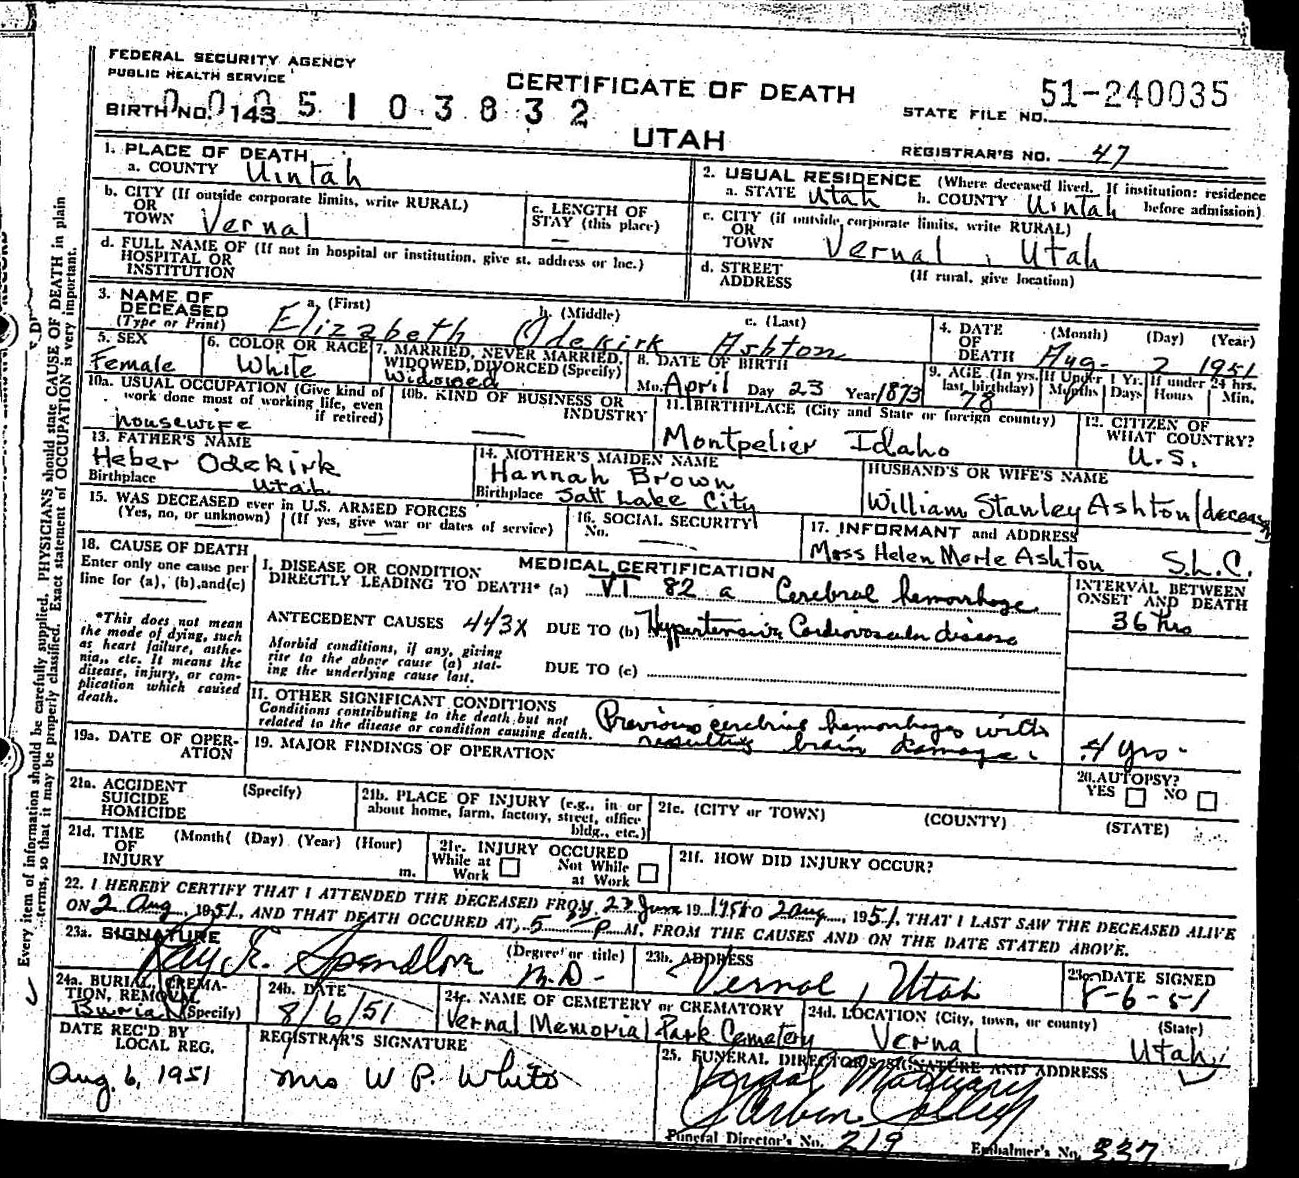 FEDERAL SECURITY AGENCY
PUBLIC HEALTH SERVICE
CERTIFICATE OF DEATH
UTAH
BIRTH NO. 143
0005103832
STATE FILE NO. 51-240035
REGISTRAR'S NO. 47
1. PLACE OF DEATH
a. COUNTY Uintah
b. CITY (If outside corporate limits, write RURAL)
OR
TOWN Vernal
c. LENGTH OF
STAY (this place) —
d. FULL NAME OF (If not in hospital or institution, give st. address or loc.)
HOSPITAL OR
INSTITUTION
2. USUAL RESIDENCE (Where deceased lived. If institution: residence
before admission)
a. STATE Utah b. COUNTY Uintah
c. CITY (if outside corporate limits, write RURAL)
OR
TOWN Vernal, Utah
d. STREET (If rural, give location)
ADDRESS
3. NAME OF
DECEASED
(Type or Print)
a. (First) b. (Middle) c. (Last)
Elizabeth Odekirk Ashton
4. DATE
OF
DEATH
(Month) (Day) (Year)
Aug- 2 1951
5. SEX
Female
6. COLOR OR RACE
White
7. MARRIED, NEVER MARRIED,
WIDOWED, DIVORCED (Specify)
Widowed
8. DATE OF BIRTH
Mo. April Day 23 Year 1873
9. AGE (In yrs.
last birthday)
78
If Under 1 Yr.
Months Days
If under 24 hrs.
Hours Min.
10a. USUAL OCCUPATION (Give kind of
work done most of working life, even
if retired)
housewife
10b. KIND OF BUSINESS OR
INDUSTRY
—
11. BIRTHPLACE (City and State or foreign country)
Montpelier Idaho
12. CITIZEN OF
WHAT COUNTRY?
U.S.
13. FATHER'S NAME
Heber Odekirk
Birthplace Utah
14. MOTHER'S MAIDEN NAME
Hannah Brown
Birthplace Salt Lake City
HUSBAND'S OR WIFE'S NAME
William Stanley Ashton
15. WAS DECEASED ever in U.S. ARMED FORCES
(Yes, no, or unknown) (If yes, give war or dates of service)
16. SOCIAL SECURITY
No. —
17. INFORMANT and ADDRESS
Helen Ashton S.L.C.
18. CAUSE OF DEATH
Enter only one cause per
line for (a), (b), and (c)
*This does not mean
the mode of dying, such
as heart failure, asthe-
nia, etc. It means the
disease, injury, or com-
plication which caused
death.
MEDICAL CERTIFICATION
I. DISEASE OR CONDITION
DIRECTLY LEADING TO DEATH* (a) VI 82 a Cerebral hemorrhage
ANTECEDENT CAUSES 443X DUE TO (b) Hypertensive Cardiovascular disease
Morbid conditions, if any, giving
rise to the above cause (a) stat-
ing the underlying cause last.
DUE TO (c)
INTERVAL BETWEEN
ONSET AND DEATH
36 hrs
11. OTHER SIGNIFICANT CONDITIONS
Conditions contributing to the death but not
related to the disease or condition causing death.
Previous hemorrhages with
resulting brain damage.
4 yrs-
19a. DATE OF OPER-
ATION
19. MAJOR FINDINGS OF OPERATION
20. AUTOPSY?
YES NO
21a. ACCIDENT
SUICIDE
HOMICIDE
(Specify)
21b. PLACE OF INJURY (e.g., in or
about home, farm, factory, street, office
bldg., etc.)
21c. (CITY or TOWN) (COUNTY) (STATE)
21d. TIME
OF
INJURY
(Month( (Day) (Year) (Hour)
m.
21e. INJURY OCCURED
While at
Work
Not While
at Work
21f. HOW DID INJURY OCCUR?
22. I HEREBY CERTIFY THAT I ATTENDED THE DECEASED FROM 1951 TO 2 aug, 1951, THAT I LAST SAW THE DECEASED ALIVE
ON 2 Aug, 1951, AND THAT DEATH OCCURED AT, 5 P M, FROM THE CAUSES AND ON THE DATE STATED ABOVE.
23a. SIGNATURE
Ray E. Spendlove
(Degree or title)
M.D-
23b. ADDRESS
Vernal, Utah
23c. DATE SIGNED
8-6-51
24a. BURIAL, CREMA-
TION, REMOVAL
Burial (Specify)
24b. DATE
8/6/51
24c. NAME OF CEMETERY or CREMATORY
Vernal Memorial Park Cemetery
24d. LOCATION (City, town, or county) (State)
Vernal Utah
DATE REC'D BY
LOCAL REG.
Aug. 6, 1951
REGISTRAR'S SIGNATURE
Mrs W P. White
25. FUNERAL DIRECTOR'S SIGNATURE AND ADDRESS
Funeral Director's No. 219 Embalmer's No. 337
Every item of information should be carefully supplied. PHYSICIANS should state CAUSE OF DEATH in plain
terms, so that it may be properly classified. Exact statement of OCCUPATION is very important.